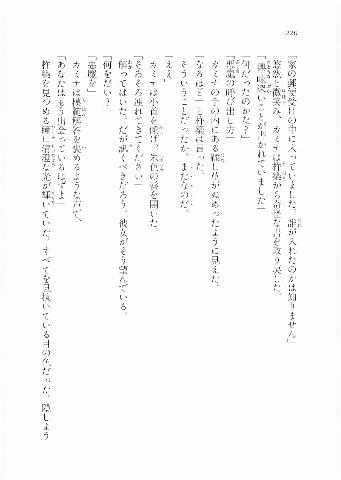 220
「家の郵便受けの中に入っていました。誰が入れたのかは知りません」
悠然と微笑み、カミナは柊薬から奇怪な書を取り戻した。
「興味深いことが書かれていました」
「何だったのかな?」
「悪魔の呼び出し方」
カミナの手の内にある緑し草がぬめったように見えた。
「なるほど」と柊薬は言った。
そういうことだったか。またなのだ。
「ええ」
カミナは小首を傾げ、朱色の唇を開いた。
「そろそろ連れてきてください」
解ってはいた。だが訊くべきだろう。彼女がそう望んでいる。
「何をだい?」
「悪魔を」
カミナは模範解答を褒めるような声で、
「あなたはもう出会っているはずよ」
柊薬を見つめる瞳に清澄な光が輝いていた。すべてを見抜いている目の色だった。隠しよう